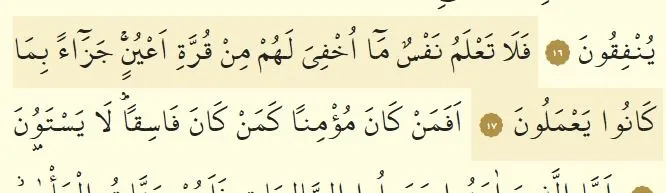 يُنْفِقُونَ ١٦ فَلَا تَعْلَمُ نَفْسٌ مَٓا اُخْفِيَ لَهُمْ مِنْ قُرَّةِ اَعْيُنٍۚ جَزَٓاءً بِمَا
كَانُوا يَعْمَلُونَ ١٧ اَفَمَنْ كَانَ مُؤْمِنًا كَمَنْ كَانَ فَاسِقًاۜ لَا يَسْتَوُ۫نَ